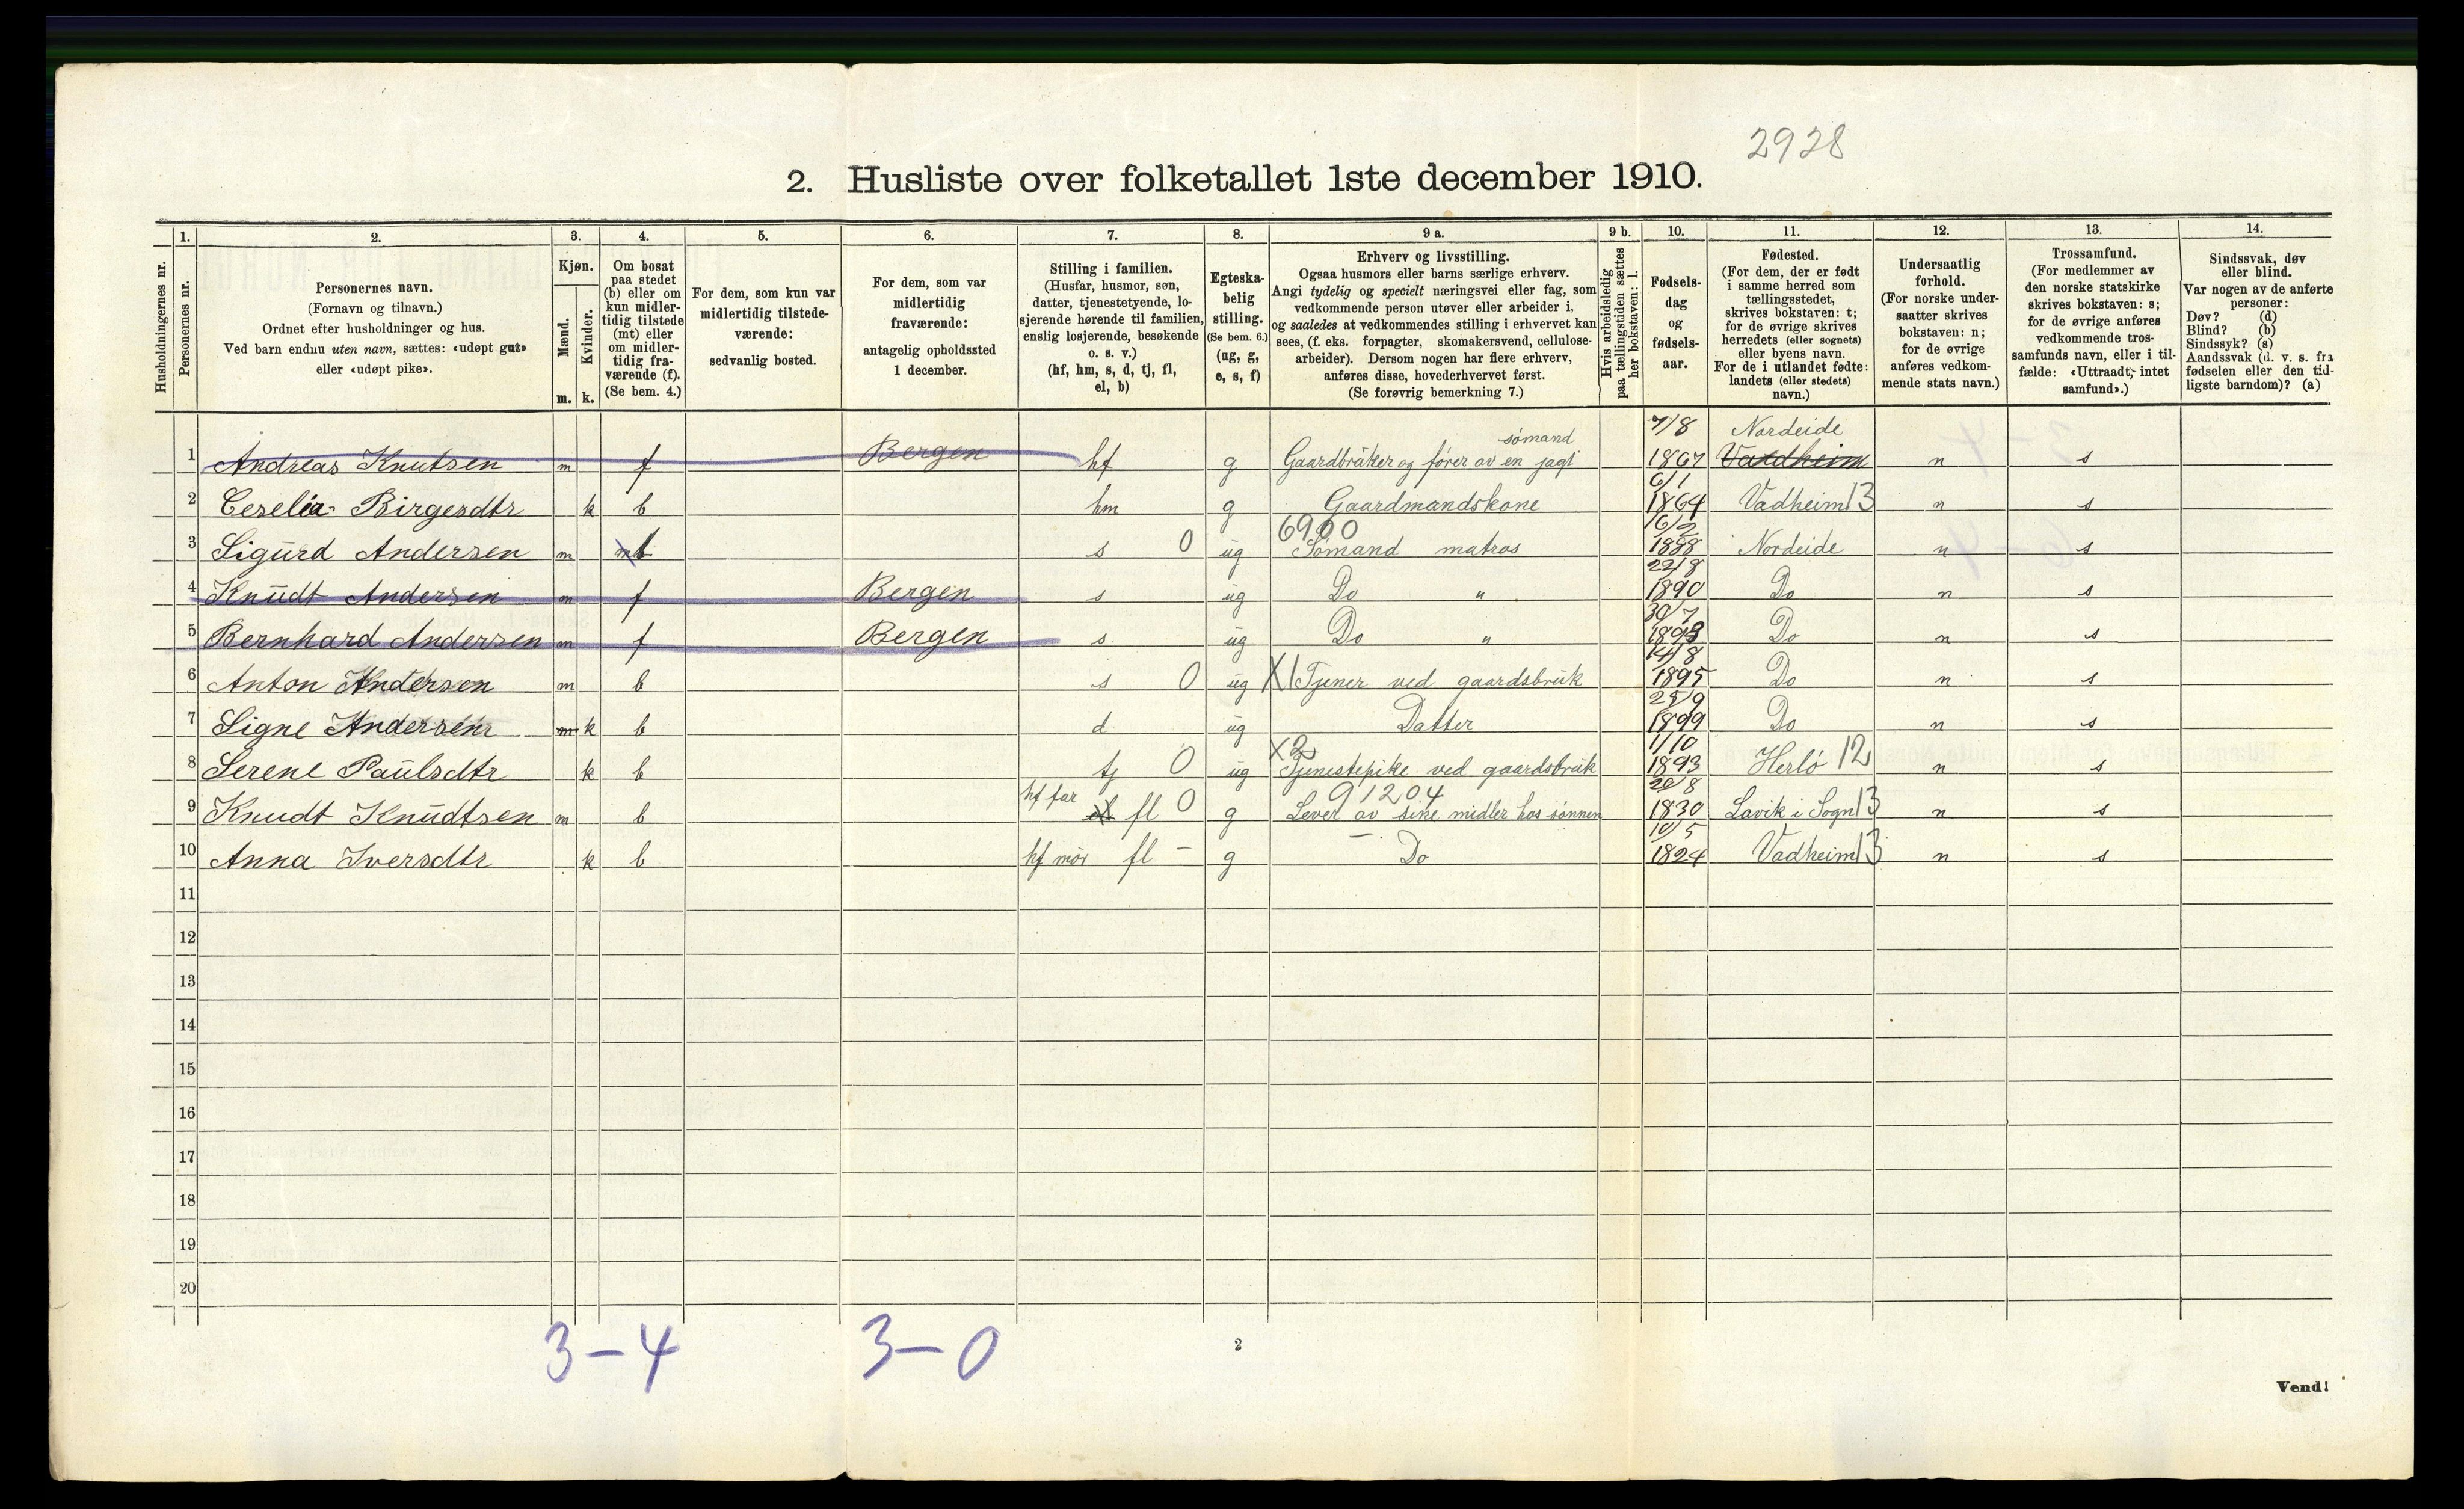 2928
2. Husliste over folketallet 1ste december 1910.
Husholdningernes nr.
1. Personernes nr.
2. Personernes navn. (Fornavn og tilnavn.) Ordnet efter husholdninger og hus. Ved barn endnu uten navn, sættes: «udøpt gut» eller «udøpt pike».
3. Kjøn. Mænd. m. Kvinder. k.
4. Om bosat paa stedet (b) eller om kun midlertidig tilstede (mt) eller om midlertidig fraværende (f). (Se bem. 4.)
5. For dem, som kun var midlertidig tilstedeværende: sedvanlig bosted.
6. For dem, som var midlertidig fraværende: antagelig opholdssted 1 december.
7. Stilling i familien. (Husfar, husmor, søn, datter, tjenestetyende, losjerende hørende til familien, enslig losjerende, besøkende o. s. v.) (hf, hm, s, d, tj, fl, el, b)
8. Egteskabelig stilling. (Se bem. 6.) (ug, g, e, s, f)
9 a. Erhverv og livsstilling. Ogsaa husmors eller barns særlige erhverv. Angi tydelig og specielt næringsvei eller fag, som vedkommende person utøver eller arbeider i, og saaledes at vedkommendes stilling i erhvervet kan sees, (f. eks. forpagter, skomakersvend, cellulosearbeider). Dersom nogen har flere erhverv, anføres disse, hovederhvervet først. (Se forøvrig bemerkning 7.)
9 b. Hvis arbeidsledig paa tællingstiden sættes her bokstaven: l.
10. Fødselsdag og fødselsaar.
11. Fødested. (For dem, der er født i samme herred som tællingsstedet, skrives bokstaven: t; for de øvrige skrives herredets (eller sognets) eller byens navn. For de i utlandet fødte: landets (eller stedets) navn.)
12. Undersaatlig forhold. (For norske undersaatter skrives bokstaven: n; for de øvrige anføres vedkommende stats navn.)
13. Trossamfund. (For medlemmer av den norske statskirke skrives bokstaven: s; for de øvrige anføres vedkommende trossamfunds navn, eller i tilfælde: «Uttraadt, intet samfund».)
14. Sindssvak, døv eller blind. Var nogen av de anførte personer: Døv? (d) Blind? (b) Sindssyk? (s) Aandssvak (d. v. s. fra fødselen eller den tidligste barndom)? (a)
1 Andreas Knutsen m f Bergen hf g Gaardbruker og fører av en jagt sømand 7/8 1867 Nordeide Vadheim n s
2 Ceselia Birgesdtr k b hm g Gaardmandskone 6/1 1864 Vadheim 13 n s
3 Sigurd Andersen m b s 0 ug 6900 Sømand matros 16/2 1888 Nordeide n s
4 Knudt Andersen m f Bergen s ug Do " 22/8 1890 Do n s
5 Bernhard Andersen m f Bergen s ug Do " 30/7 1893 Do n s
6 Anton Andersen m b s 0 ug X1 Tjener ved gaardsbruk 14/8 1895 Do n s
7 Signe Andersen m k b d ug Datter 25/9 1899 Do n s
8 Serene Paulsdtr k b tj 0 ug X2 Tjenestepike ved gaardsbruk 1/10 1893 Herlø 12 n s
9 Knudt Knudtsen m b hf far fl 0 g 91204 Lever av sine midler hos sønnen 20/8 1830 Lavik i Sogn 13 n s
10 Anna Iversdtr k b hf mor fl – g Do 10/5 1824 Vadheim 13 n s
11
12
13
14
15
16
17
18
19
20
3-4 3-0
2
Vend!